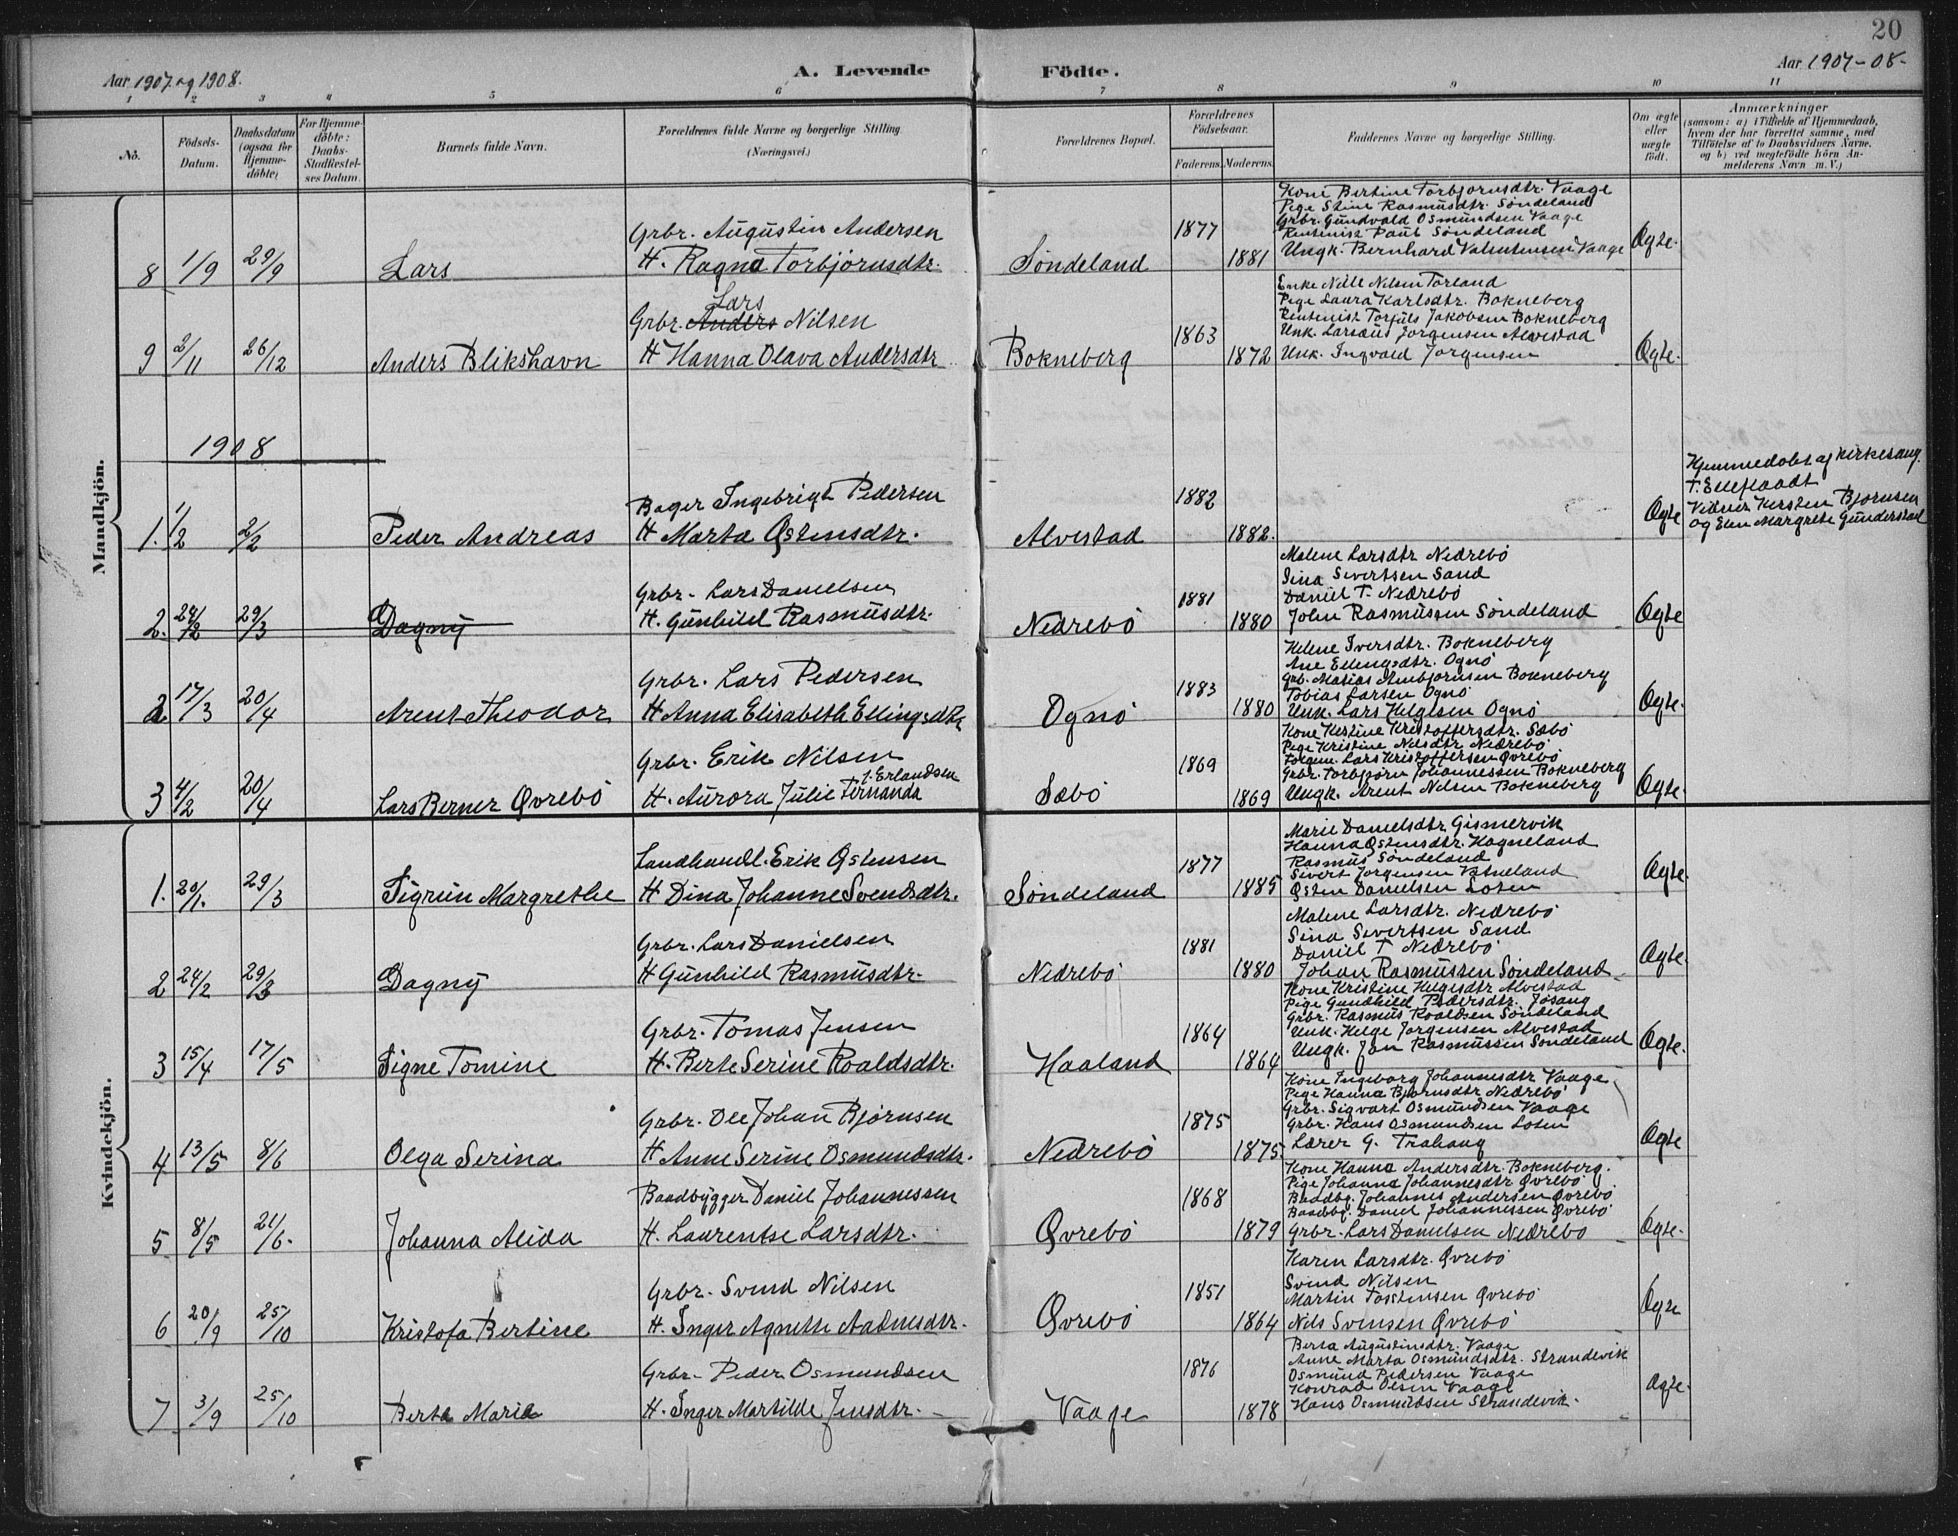 20
Aar 1907 og 1908.
A. Levende
Födte.
Aar 1907-08-
1 2 3 4 5 6 7 8 9 10 11
No.
Födsels-Datum.
Daabsdatum (ogsaa for Hjemme-döbte)
For Hjemme-döbte: Daabs-Stadfæstel-ses Datum.
Barnets fulde Navn.
Forældrenes fulde Navne og borgerlige Stilling
(Næringsvei.)
Forældrenes Bopæl.
Forældrenes Födselsaar.
Faderens. Moderens.
Faddernes Navne og borgerlige Stilling.
Om ægte eller uægte födt.
Anmærkninger
(saasom: a) i Tilfælde af Hjemmedaab, hvem der har forrettet samme, med Tilföielse af to Daabsvidners Navne. og b) ved uægtefödte börn An-melderens Navn m. V.)
Mandkjön.
8 1/9 29/9 Lars
Grbr. Augustin Andersen
H. Ragna Torbjørnsdtr.
Søndeland 1877 1881
Kone Bertine Torbjørnsdtr. Vaage
Pige Stine Rasmusdtr. Søndeland
Grbr. Gundvald Osmundsen Vaage
Rentenist Paul Søndeland
Ungk. Bernhard Valentensen Vaage
Ægte.
9 2/11 26/12 Anders Blikshavn
Lars
Grbr. Anders Nilsen
H Hanna Olava Andersdtr
Bokneberg 1863 1872
Enke Nille Nilsen Torland
Pige Laura Karlsdtr. Bokneberg
Rentenist Torfuls Jakobsen Bokneberg
Unk. Larsæus Jørgensen Alvestad
Unk. Ingvald Jørgensen
Ægte.
1908
1. 1/2 2/2 Peder Andreas
Bager Ingebrigt Pedersen
H Marta Østensdtr.
Alvestad 1882 1882.
Ægte
Hjemmedøbt af kirkesang.
Vidner Kersten Bjørnsen
og Elen Margrete Gunderstad
2. 24/2 29/3 Dagny
Grbr. Lars Danielsen
H. Gunhild Rasmusdtr.
Nedrebø 1881 1880
Malene Larsdtr Nedrebø
Sina Sivertsen Sand
Daniel T. Nedrebø
John Rasmussen Søndeland
Ægte
2. 17/3 20/4 Arent Theodor
Grbr. Lars Pedersen
H Anna Elisabeth Ellingsdtr
Ognø 1883 1880
Helene Iversdtr. Bokneberg
Ane Ellingsdtr. Ognø
Grb. Matias Ambjørnsen Bokneberg
Tobias Larsen Ognø
Unk. Lars Helgesen Ognø
Ægte.
3 4/2 20/4 Lars Berner Øvrebø
Grbr. Erik Nilsen
f. Erlandsen
H. Aurora Julie Fernanda
Sæbø 1869 1869
Kone Kestine Kristoffersdtr. Sæbø
Pige Kristine Nilsdtr Nedrebø
Lars Kristoffersen Øvrebø
Grbr. Torbjørn Johannessen Bokneberg
Ungk. Arent Nilsen Bokneberg
Ægte.
Kvindekjön.
1. 20/1. 29/3 Sigrun Margrethe
Landhandl. Erik Østensen
H Dina Johanne Svendsdtr.
Søndeland 1877 1885
Marie Danielsdtr Gismervik
Hanna Østensdtr. Hagneland
Rasmus Søndeland
Sivert Jørgensen Vatneland
Østen Danielsen Loten
Ægte.
2 24/2 29/3 Dagny
Grbr. Lars Danielsen
H Gunhild Rasmusdtr.
Nedrebø 1881 1880
Malene Larsdtr. Nedrebø
Sina Sivertsen Sand
Daniel T Nedrebø
Johan Rasmussen Søndeland
Ægte.
3 15/4 17/5 Signe Tomine
Grbr. Tomas Jensen
H. Berte Serine Roaldsdtr.
Haaland 1864 1864
Kone Kristine Helgesdtr Alvestad
Pige Gundhild Pedersdtr. Jøsang
Grbr. Rasmus Roaldsen Søndeland
Unk. Helge Jørgensen Alvestad
Ungk. Jon Rasmussen Søndeland
Ægte.
4 13/5 8/6 Olga Serina
Grbr. Ole Johan Bjørnsen
H Anne Serine Osmundsdtr.
Nedrebø 1875 1875
Kone Ingeborg Johannesdtr Vaage
Pige Hanna Bjørnsdtr Nedrebø
Grbr. Sigvart Osmundsen Vaage
Grbr. Hans Osmundsen Loten
Lærer G. Trahaug
Ægte
5 8/5 21/6. Johanna Alida
Baadbygger Daniel Johannessen
H. Laurentse Larsdtr.
Øvrebø 1868 1879
Kone Hanna Andersdtr. Bokneberg.
Pige Johanna Johannesdtr Øvrebø
Baadbg. Johannes Andersen Øvrebø
Baadbg. Daniel Johannessen Øvrebø
Grbr. Lars Danielsen Nedrebø
Ægte.
6 20/9 25/10 Kristofa Bertine
Grbr. Svend Nilsen
H. Inger Agnethe Aadnesdtr.
Øvrebø 1851 1864
Karen Larsdtr. Øvrebø
Svend Nilsen
Martin Tostensen Øvrebø
Nils Svensen Øvrebø
Ægte
7 3/9 25/10 Berta Marie
Grbr. Peder Osmundsen
H. Inger Martilde Jensdtr.
Vaage 1876 1878
Berta Augustinsdtr. Vaage
Anne Marta Osmundsdtr. Strandevik
Osmund Pedersen Vaage
Konrad Olsen Vaage
Hans Osmundsen Strandevik.
Ægte.